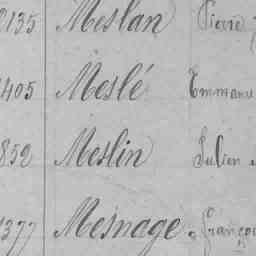 2135 Meslan Pierre
1405 Meslé Emmanu
852 Meslin Julien
1377 Mesnage Franço